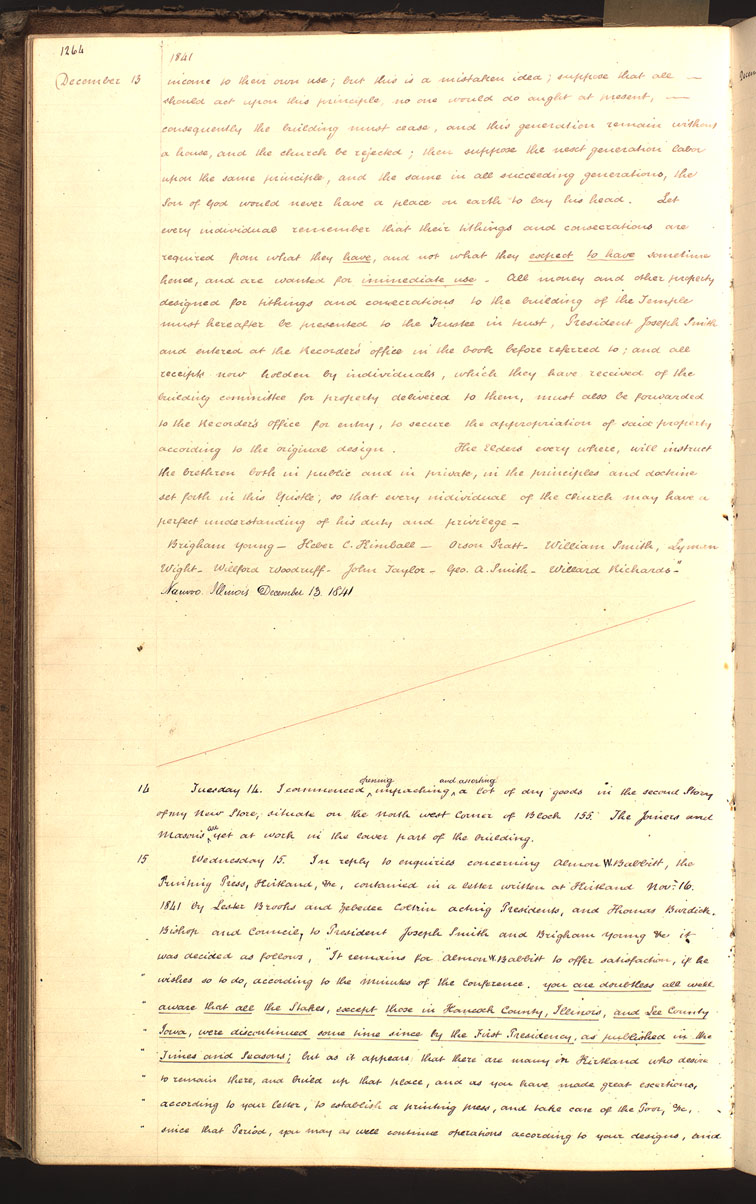 1264
1841
December 13 income to their own use; but this is a mistaken idea; suppose that all —
should act upon this principle, no one would do aught at present, —
consequently the building must cease, and this generation remain without
a house, and the church be rejected; then suppose the next generation labor
upon the same principle, and the same in all succeeding generations, the
Son of God would never have a place on earth to lay his head. Let
every individual remember that their tithings and consecrations are
required from what they have, and not what they expect to have sometime
hence, and are wanted for immediate use. All money and other property
designed for tithings and consecrations to the building of the Temple
must hereafter be presented to the Trustee in trust, President Joseph Smith
and entered at the Recorder's office in the book before referred to; and all
receipts now holden by individuals, which they have received of the
building committee for property delivered to them, must also be forwarded
to the Recorder's office for entry, to secure the appropriation of said property
according to the original design. The Elders every where, will instruct
the brethren both in public and in private, in the principles and doctrine
set forth in this Epistle, so that every individual of the church may have a
perfect understanding of his duty and privilege —
Brigham Young — Heber C. Kimball — Orson Pratt — William Smith, Lyman
Wight — Wilford Woodruff — John Taylor — Geo. A. Smith — Willard Richards —"
Nauvoo. Illinois December 13. 1841
opening and assorting
14 Tuesday 14. I commenced unpacking a lot of dry goods in the second Story
of my New Store, situate on the north west Corner of Block 155. The Joiners and
are
Masons yet at work in the lower part of the building.
15 Wednesday 15. In reply to enquiries concerning Almon W. Babbitt, the
Printing Press, Kirtland, &c, contained in a letter written at Kirtland Nov. 16.
1841 by Lester Brooks and Zebedee Coltrin acting Presidents, and Thomas Burdick.
Bishop and Council, to President Joseph Smith and Brigham Young &c it
was decided as follows, "It remains for Almon W. Babbitt to offer satisfaction, if he
wishes so to do, according to the minutes of the Conference. you are doubtless all well
" aware that all the Stakes, except those in Hancock County, Illinois, and Lee County
" Iowa, were discontinued some time since by the First Presidency, as published in the
" Times and Seasons; but as it appears that there are many in Kirtland who desire
" to remain there, and build up that place, and as you have made great exertions,
" according to your letter, to establish a printing press, and take care of the Poor, &c,
" since that Period, you may as well continue operations according to your designs, and